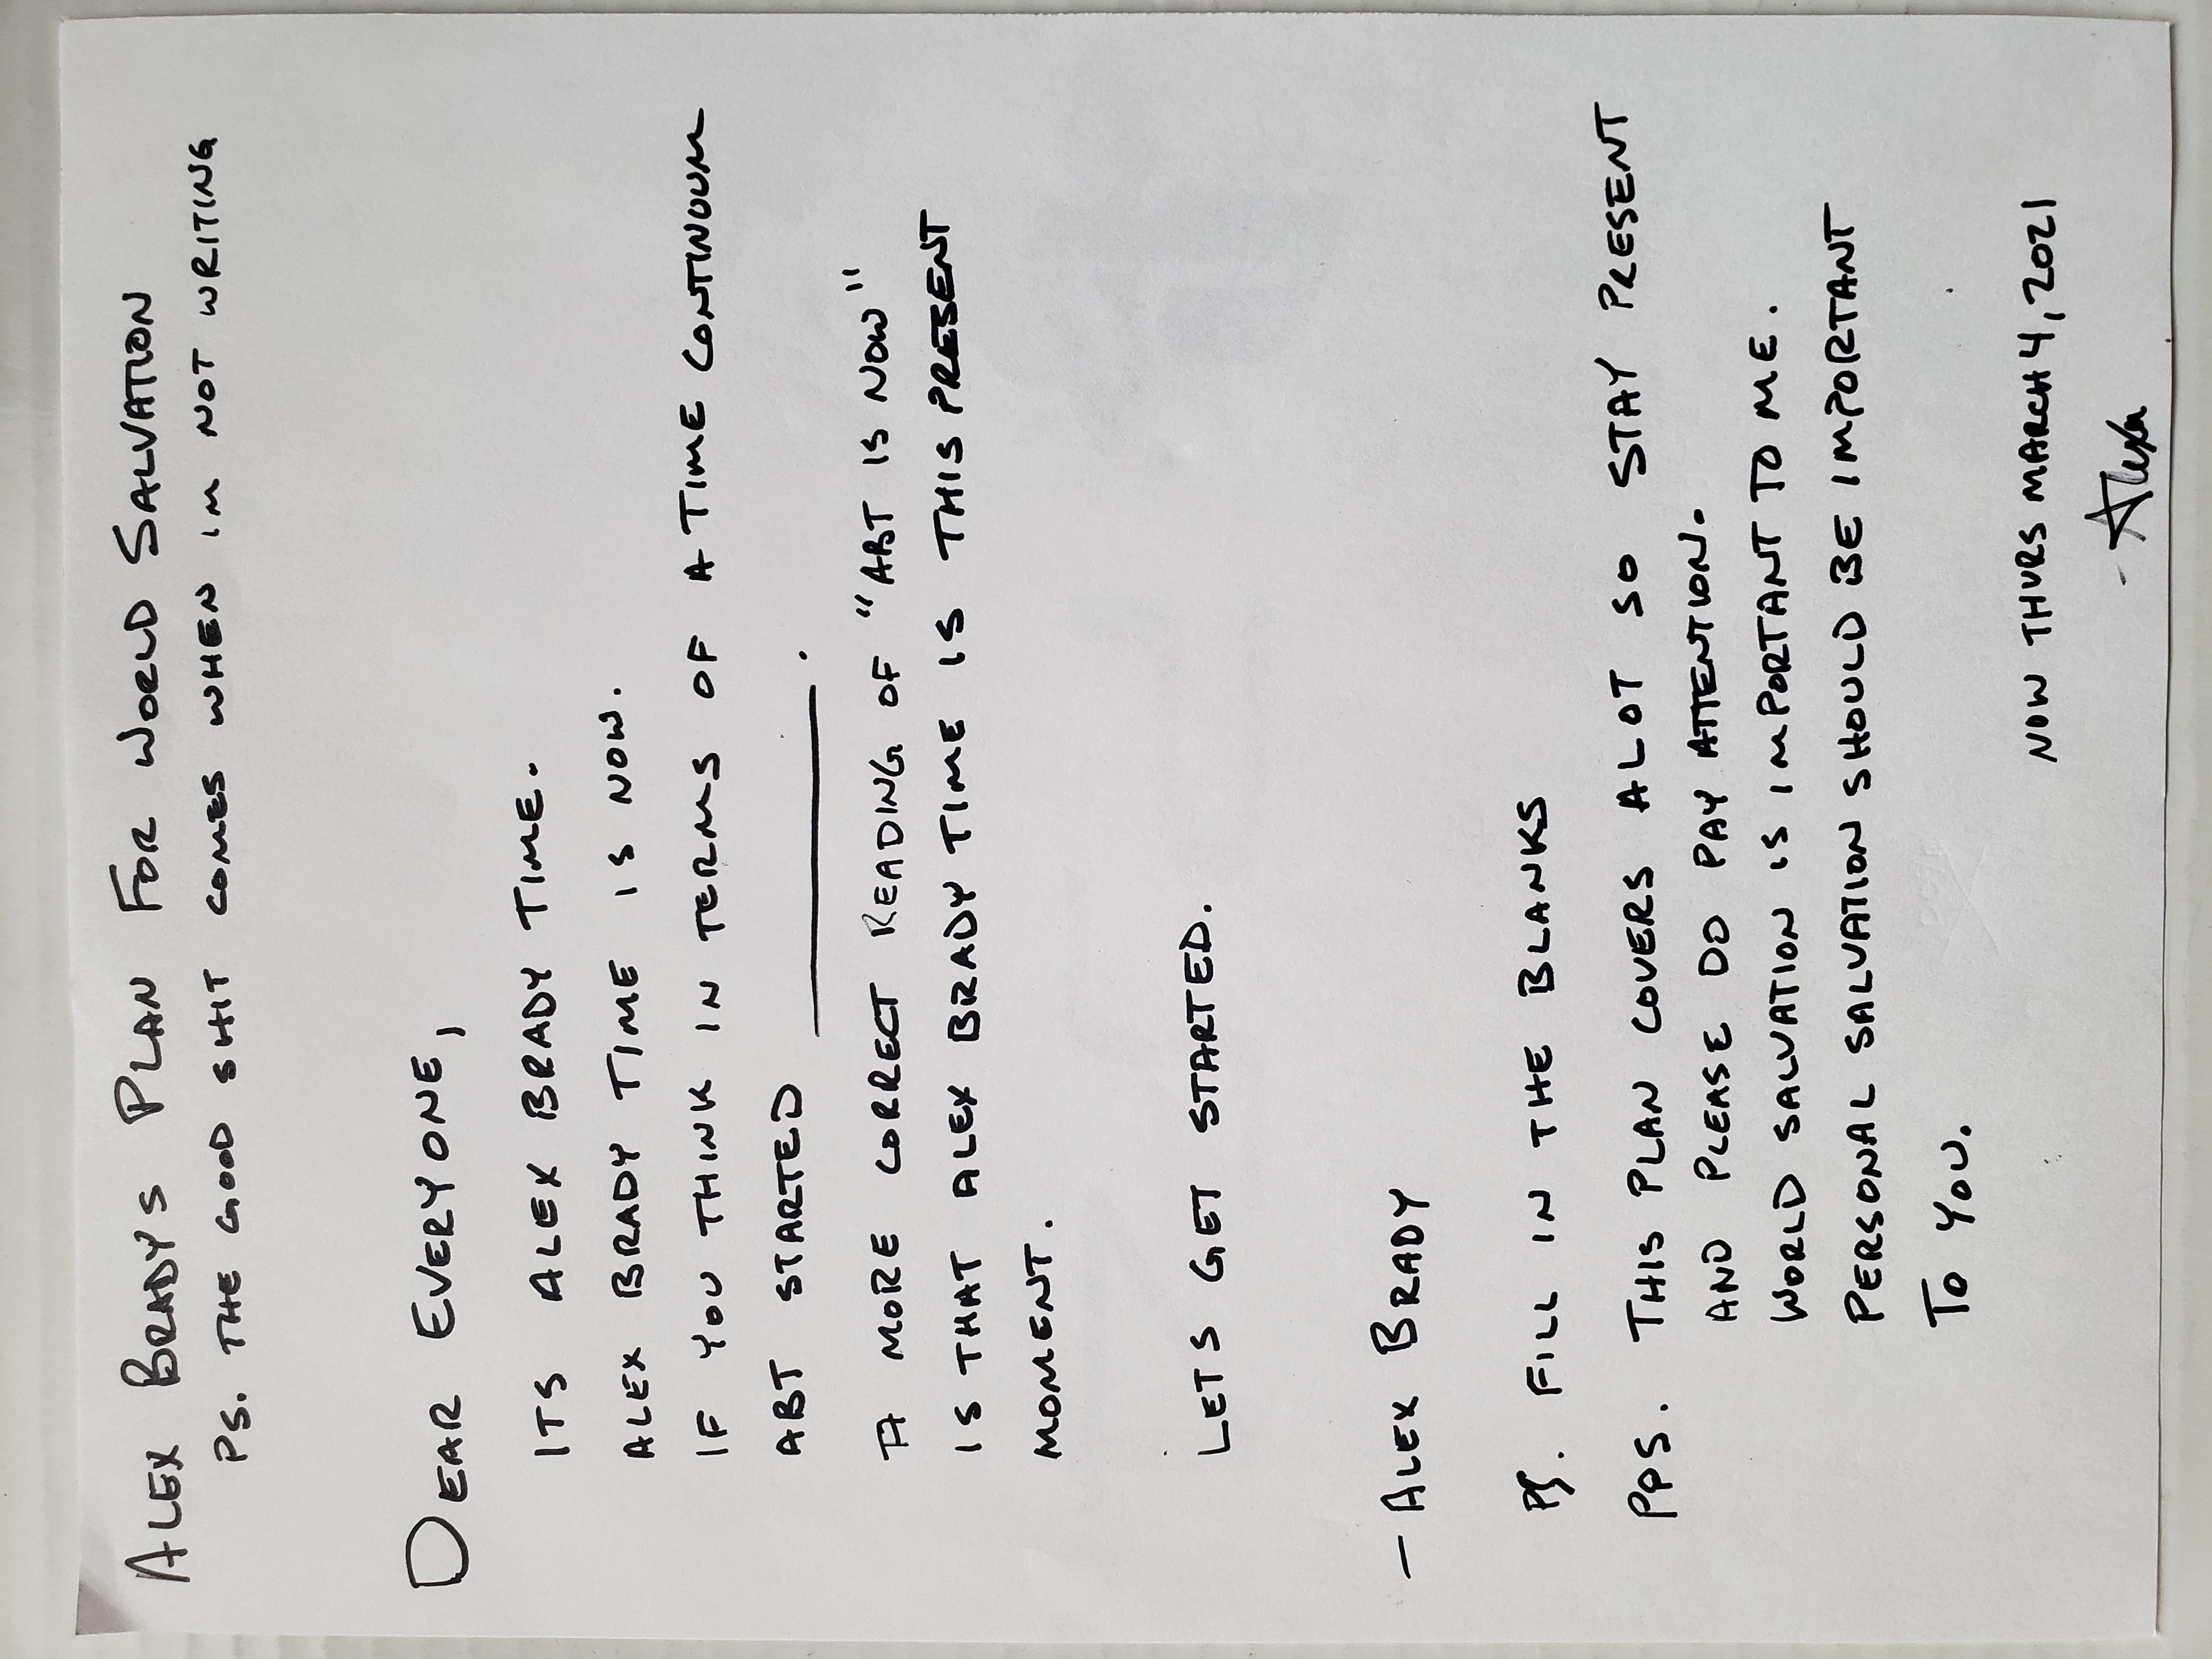 ALEX BRADY'S PLAN FOR WORLD SALVATION
PS. THE GOOD SHIT COMES WHEN IM NOT WRITING
DEAR EVERYONE,
ITS ALEX BRADY TIME.
ALEX BRADY TIME IS NOW.
IF YOU THINK IN TERMS OF A TIME CONTINUUM
ABT STARTED __________.
A MORE CORRECT READING OF "ABT IS NOW"
IS THAT ALEX BRADY TIME IS THIS PRESENT
MOMENT.
LETS GET STARTED.
- ALEX BRADY
PS. FILL IN THE BLANKS
PPS. THIS PLAN COVERS ALOT SO STAY PRESENT
AND PLEASE DO PAY ATTENTION.
WORLD SALVATION IS IMPORTANT TO ME.
PERSONAL SALVATION SHOULD BE IMPORTANT
TO YOU.
NOW THURS MARCH 4, 2021